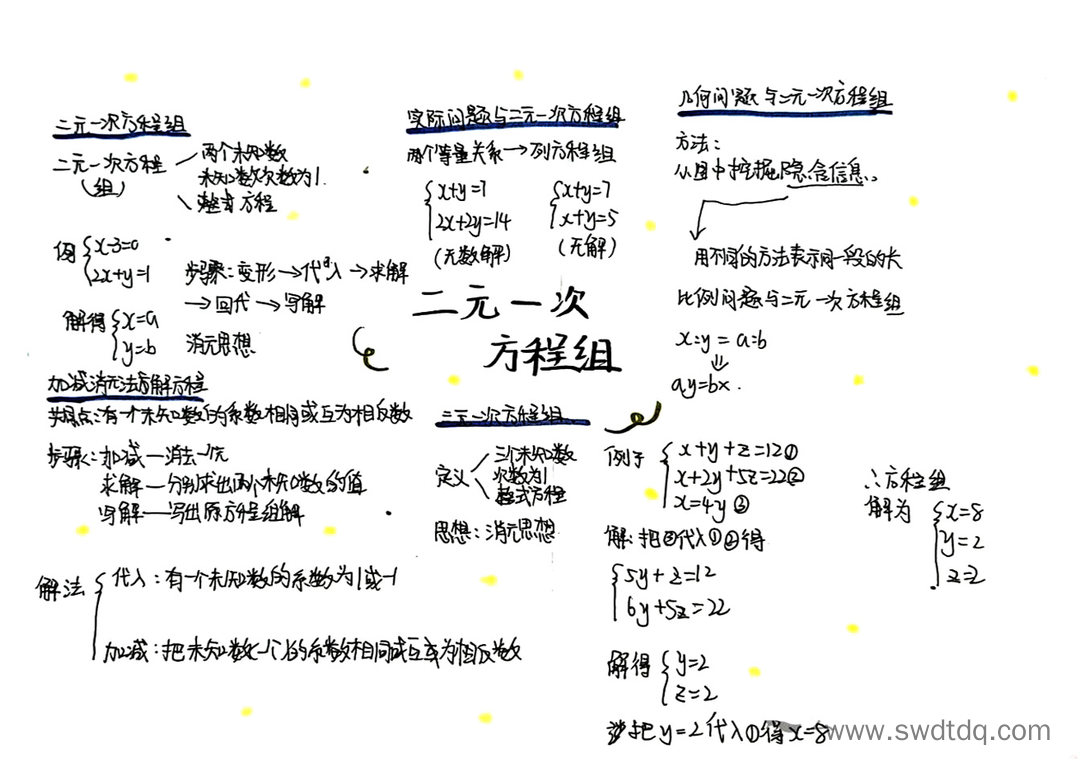 二元一次方程组
二元一次方程
(组)
两个未知数
未知数次数为1.
整式方程
例 {x-3=0
2x+y=1
步骤:变形→代入→求解
→回代→写解
解得 {x=a
y=b
消元思想
加减消元法与解方程
特点:有一个未知数的系数相同或互为相反数
步骤:加减—消去一元
求解—分别求出两个未知数的值
写解—写出原方程组解
解法
代入:有一个未知数的系数为1或-1
加减:把未知数(一个)的系数相同或互为相反数
实际问题与二元一次方程组
两个等量关系→列方程组
{x+y=7
2x+2y=14
(无数解)
{x+y=7
x+y=5
(无解)
二元一次
方程组
三元一次方程组
定义
三个未知数
次数为1
整式方程
思想:消元思想
几何问题与二元一次方程组
方法:
从图中挖掘隐含信息.
用不同的方法表示同一段的长
比例问题与二元一次方程组
x:y=a:b
⇓
ay=bx.
例于 {x+y+z=12①
x+2y+5z=22②
x=4y ③
解:把③代入①②得
{5y+z=12
6y+5z=22
解得 {y=2
z=2
把y=2代入①得x=8
∴方程组
解为 {x=8
y=2
z=2
www.swdtdq.com